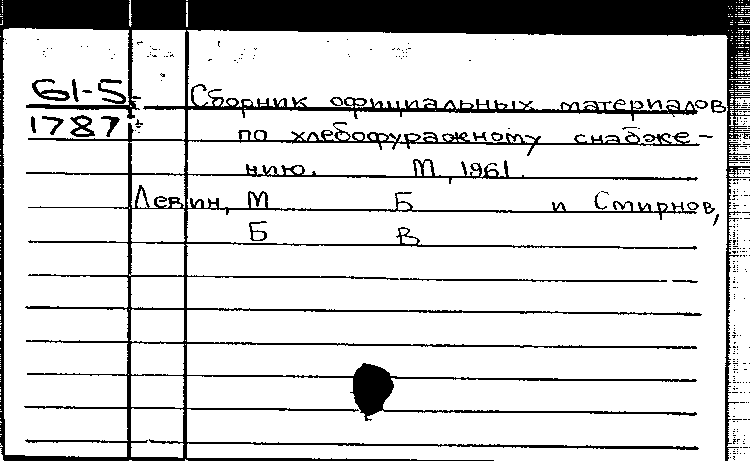 61-5 Сборник официальных материалов
1787 по хлебофуражному снабже-
нию. М, 1961.
Левин, М Б и Смирнов,
Б В